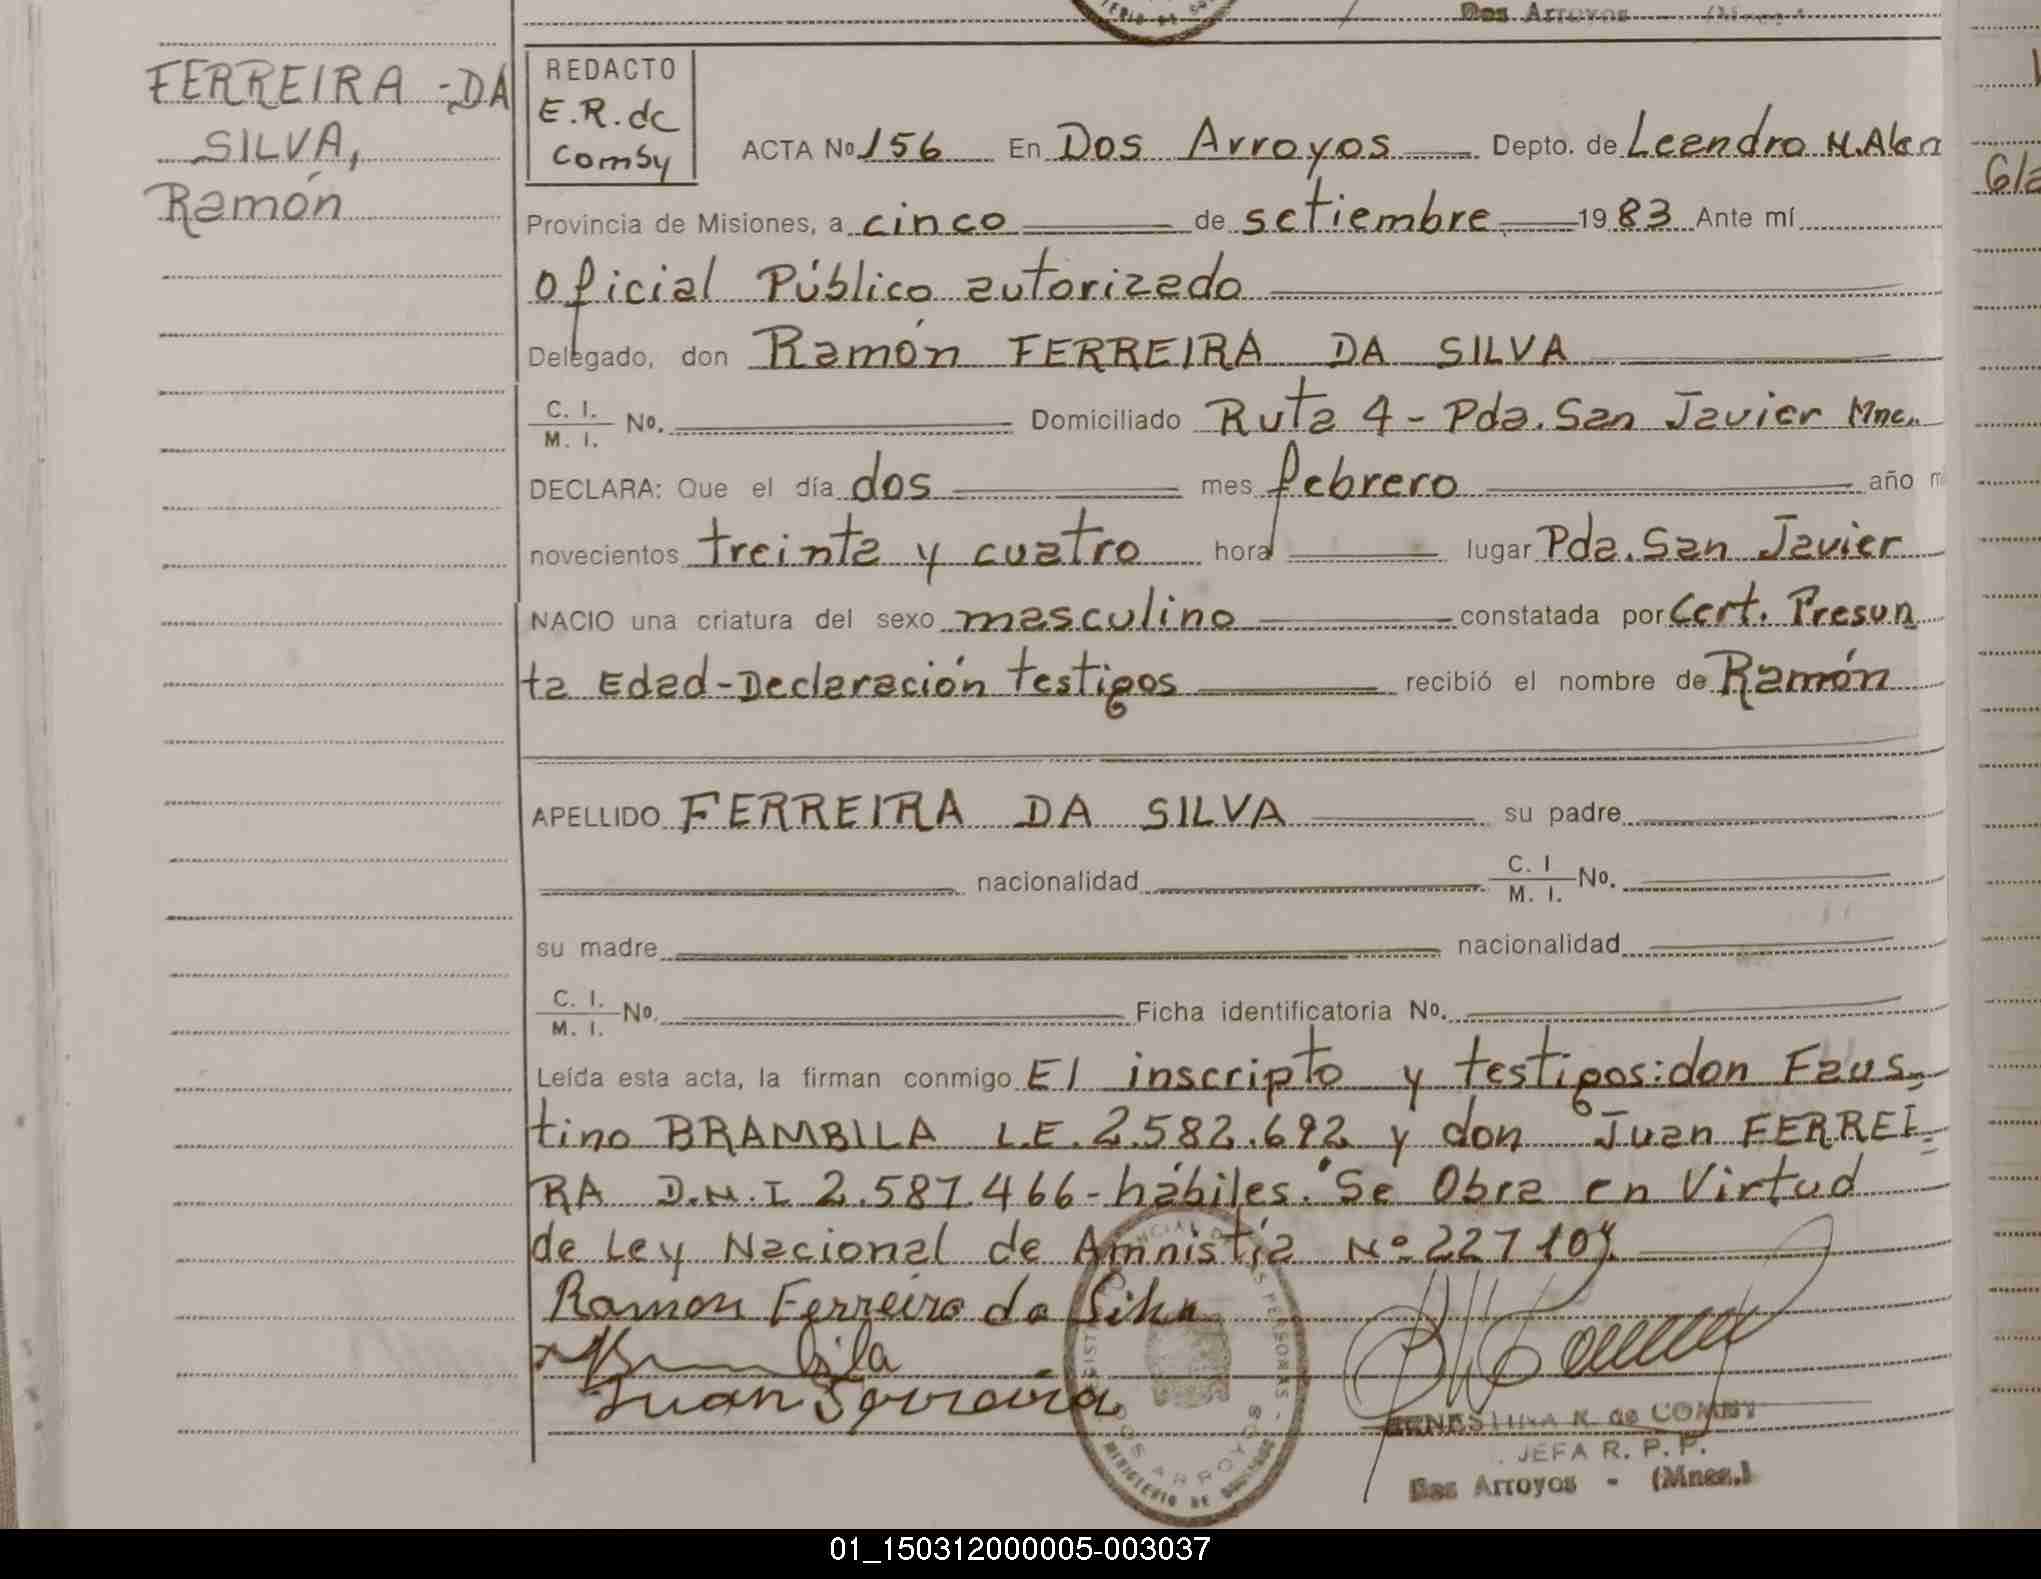 Dos Arroyos
FERREIRA - DA
SILVA,
Ramón
REDACTO
E.R. de
Comby
ACTA No 156 En Dos Arroyos Depto. de Leandro N. Alen
Provincia de Misiones, a cinco de setiembre 1983 Ante mí
Oficial Público autorizado
Delegado, don Ramón FERREIRA DA SILVA
C. I.
M. I. No. Domiciliado Ruta 4 - Pda. San Javier Mnes.
DECLARA: Que el día dos mes febrero año m
novecientos treinta y cuatro hora lugar Pda. San Javier
NACIO una criatura del sexo masculino constatada por Cert. Presun
ta Edad - Declaración testigos recibió el nombre de Ramón
APELLIDO FERREIRA DA SILVA su padre
nacionalidad C. I
M. I. No.
su madre nacionalidad
C. I.
M. I. No. Ficha identificatoria No.
Leída esta acta, la firman conmigo El inscripto y testigos: don Faus-
tino BRAMBILA L.E. 2.582.692 y don Juan FERREI-
RA D.N.I 2.587.466 - hábiles. Se Obra en Virtud
de Ley Nacional de Amnistía Nº 22710
Ramon Ferreira da Silva
Juan Ferreira
DOS ARROYOS
MINISTERIO DE
ERNESTINA R. de COMBY
JEFA R. P. P.
Dos Arroyos - (Mnes.)
01_150312000005-003037